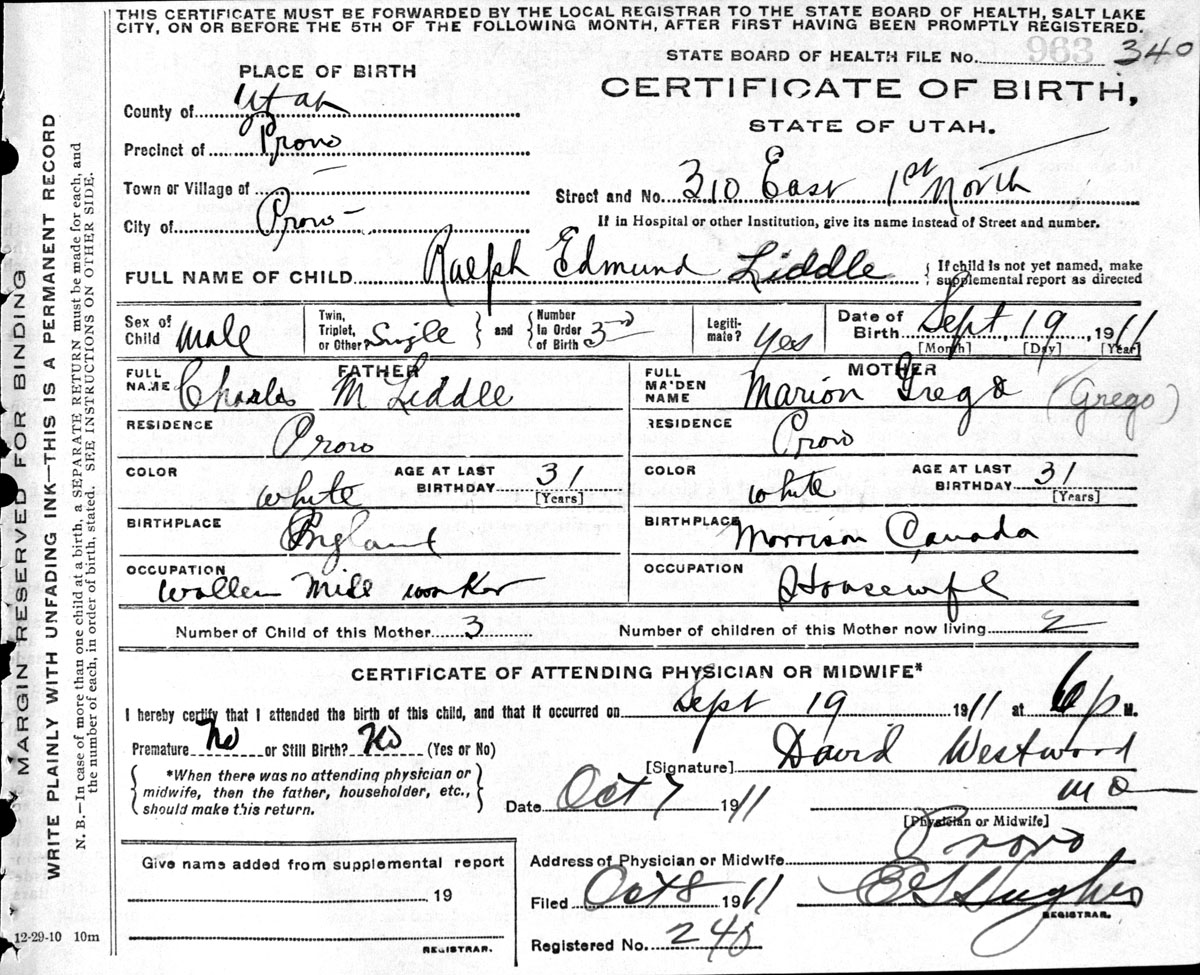 THIS CERTIFICATE MUST BE FORWARDED BY THE LOCAL REGISTRAR TO THE STATE BOARD OF HEALTH, SALT LAKE
CITY, ON OR BEFORE THE 5TH OF THE FOLLOWING MONTH, AFTER FIRST HAVING BEEN PROMPTLY REGISTERED.
STATE BOARD OF HEALTH FILE No. 963 340
PLACE OF BIRTH
CERTIFICATE OF BIRTH,
STATE OF UTAH.
County of Utah
Precinct of Provo
Town or Village of —
Street and No. 310 East 1st North
City of Provo
If in Hospital or other Institution, give its name instead of Street and number.
FULL NAME OF CHILD Ralph Edmund Liddle { If child is not yet named, make
supplemental report as directed
Sex of Child Male
Twin, Triplet, or Other? Single } and { Number in Order of Birth 3rd
Legiti-mate? Yes
Date of Birth Sept, 19, 1911
[Month] [Day] [Year]
FATHER
FULL NAME Charles M Liddle
MOTHER
FULL MAIDEN NAME Marion Grego (Grego)
RESIDENCE Provo
RESIDENCE Provo
COLOR white AGE AT LAST BIRTHDAY 31 [Years]
COLOR white AGE AT LAST BIRTHDAY 31 [Years]
BIRTHPLACE England
BIRTHPLACE Morrison Canada
OCCUPATION Wollen Mill worker
OCCUPATION Housewife
Number of Child of this Mother 3 Number of children of this Mother now living 2
CERTIFICATE OF ATTENDING PHYSICIAN OR MIDWIFE*
I hereby certify that I attended the birth of this child, and that it occurred on Sept 19 1911 at 6 p M.
Premature No or Still Birth? No (Yes or No)
[Signature] David Westwood
MD
*When there was no attending physician or
midwife, then the father, householder, etc.,
should make this return.
Date Oct 7 1911
[Physician or Midwife]
Give name added from supplemental report
19
REGISTRAR.
Address of Physician or Midwife Provo
Filed Oct 8 1911 E G Hughes
REGISTRAR.
Registered No. 240
12-29-10 10m
MARGIN RESERVED FOR BINDING
WRITE PLAINLY WITH UNFADING INK—THIS IS A PERMANENT RECORD
N. B.—In case of more than one child at a birth, a SEPARATE RETURN must be made for each, and
the number of each, in order of birth, stated. SEE INSTRUCTIONS ON OTHER SIDE.